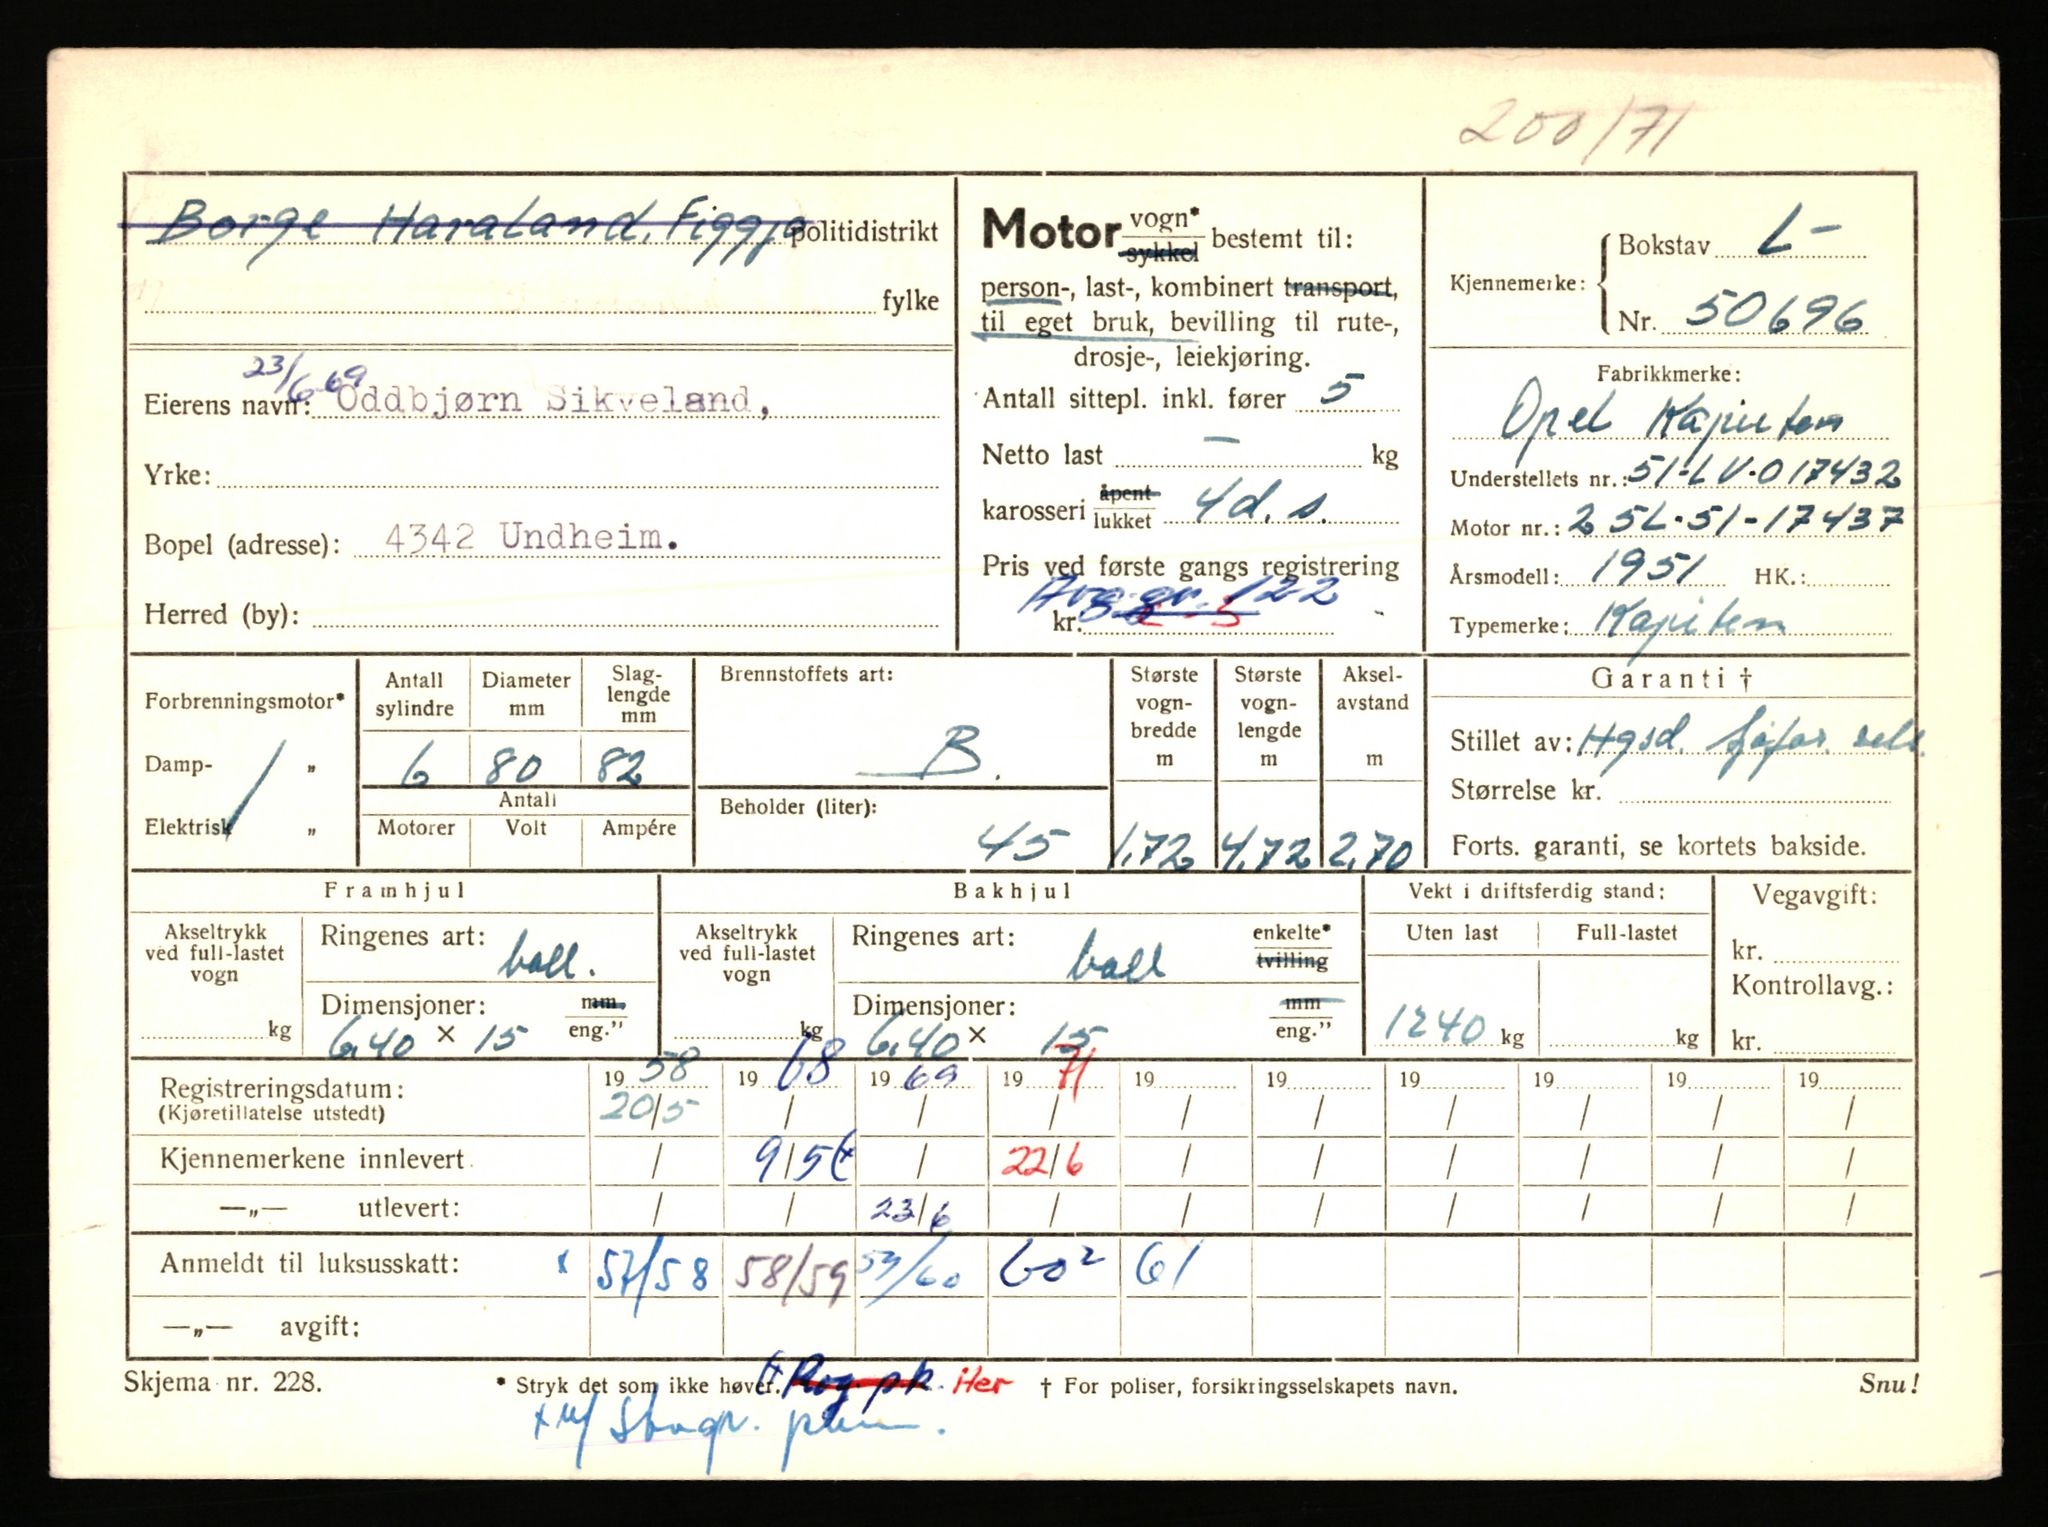 200/71
Borge Haraland, Figgjo politidistrikt
fylke
23/6 69
Eierens navn: Oddbjørn Sikveland,
Yrke:
Bopel (adresse): 4342 Undheim.
Herred (by):
Motor vogn*
sykkel bestemt til:
person-, last-, kombinert transport,
til eget bruk, bevilling til rute-,
drosje-, leiekjøring.
Antall sittepl. inkl. fører 5
Netto last — kg
karosseri åpent
lukket 4 d. s.
Pris ved første gangs registrering
Avg.gr. 122
kr.
Kjennemerke: Bokstav L-
Nr. 50696
Fabrikkmerke:
Opel Kapiten
Understellets nr.: 51-LV-017432
Motor nr.: 2 5L-51-17437
Årsmodell: 1951 HK.:
Typemerke: Kapiten
Forbrenningsmotor*
Damp- „
Elektrisk „
Antall sylindre Diameter mm Slag-lengde mm
6 80 82
Antall
Motorer Volt Ampére
Brennstoffets art:
B.
Beholder (liter):
45
Største vogn-bredde m
1,72
Største vogn-lengde m
4,72
Aksel-avstand m
2,70
Garanti †
Stillet av: Hgsd.
Størrelse kr.
Forts. garanti, se kortets bakside.
Framhjul
Akseltrykk ved full-lastet vogn
kg
Ringenes art: ball.
Dimensjoner: mm. eng."
6,40 × 15
Bakhjul
Akseltrykk ved full-lastet vogn
kg
Ringenes art: ball enkelte* tvilling
Dimensjoner: mm eng."
6,40 × 15
Vekt i driftsferdig stand:
Uten last Full-lastet
1240 kg kg
Vegavgift:
kr.
Kontrollavg.:
kr.
Registreringsdatum: 19 58 19 68 19 69 19 71 19 19 19 19 19 19
(Kjøretillatelse utstedt) 20/5 / / / / / / / / /
Kjennemerkene innlevert / 9/5 ( / 22/6 / / / / / /
—„— utlevert: / / 23/6 / / / / / / /
Anmeldt til luksusskatt: x 57/58 58/59 59/60 60² 61
—„— avgift:
Skjema nr. 228.
* Stryk det som ikke høver. Rog. pk. Her † For poliser, forsikringsselskapets navn.
Snu!